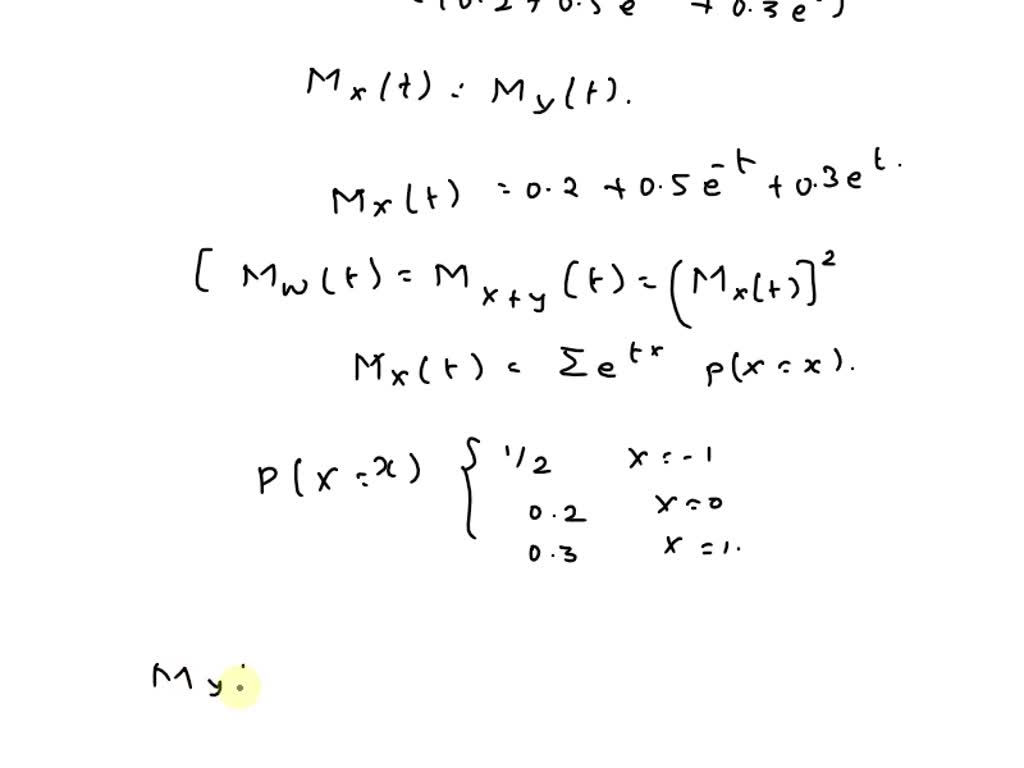 (0.2 + 0.5 e + 0.3 e )
Mx(t) = My(t).
Mx(t) = 0.2 + 0.5 e^-t + 0.3 e^t.
[ Mw(t) = Mx+y (t) = (Mx(t)]^2
Mx(t) = Σ e^tx p(x = x).
P(X = x) { 1/2 x = -1
0.2 x = 0
0.3 x = 1.
My